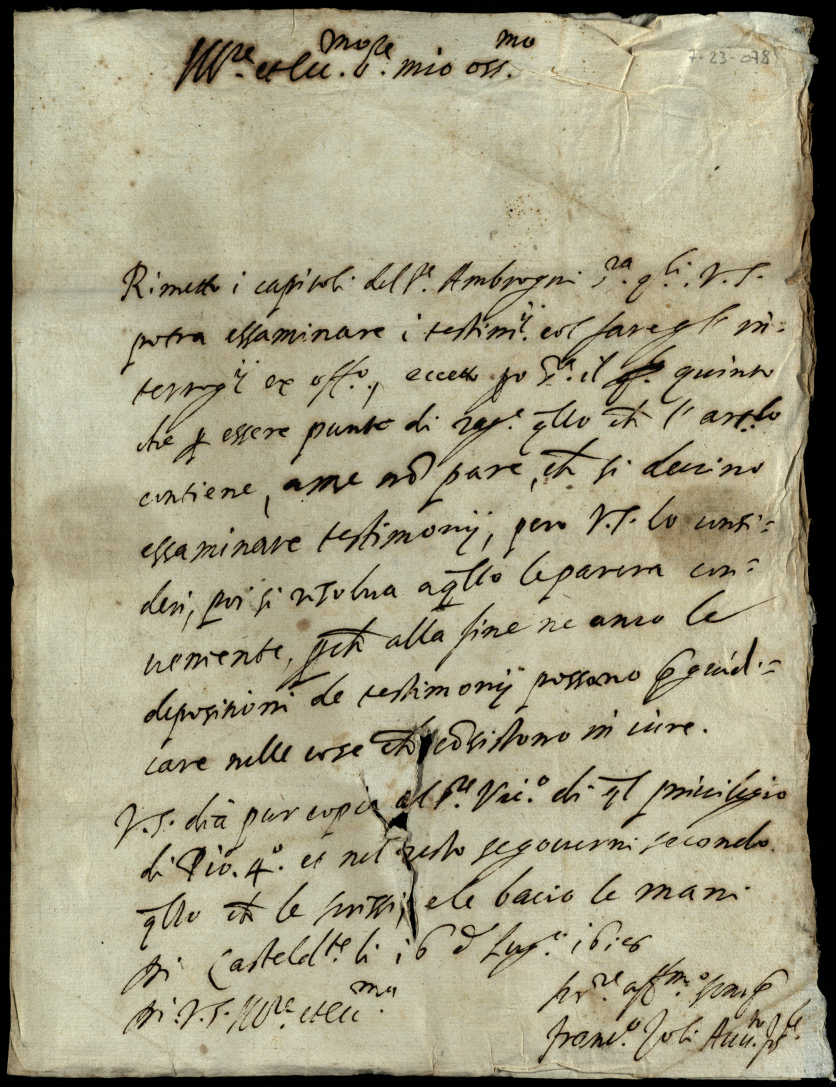 Ill.re et ecc.mo s.re mio oss.mo
7-23-078
Rimetto i capitoli del s.r Ambrogini sra q.li V.S.
potra essaminare i testimij. col fare gl' in=
terrogij ex off.o, eccetto il quinto
che p essere punto di rag.e qllo ch l' art.lo
contiene, a me nō pare, ch si devino
essaminare testimonij, pero V.S. lo consi=
deri, poi si risolva a qllo le parera con=
veniente, pch alla fine ne anco le
depositioni de testimonij possono pgiudi=
care nelle cose ch cōsistono in iure.
V.S. dia pur copia al s.r Vic.o di ql privilegio
di Pio. 4.o et nel resto se governi secondo
qllo ch le scrissi, e le bacio le mani
di Casteld.te li 16 d Lug.o
di. V.S. Ill.re et ecc.ma
ser.re aff.mo semp
Franc.o